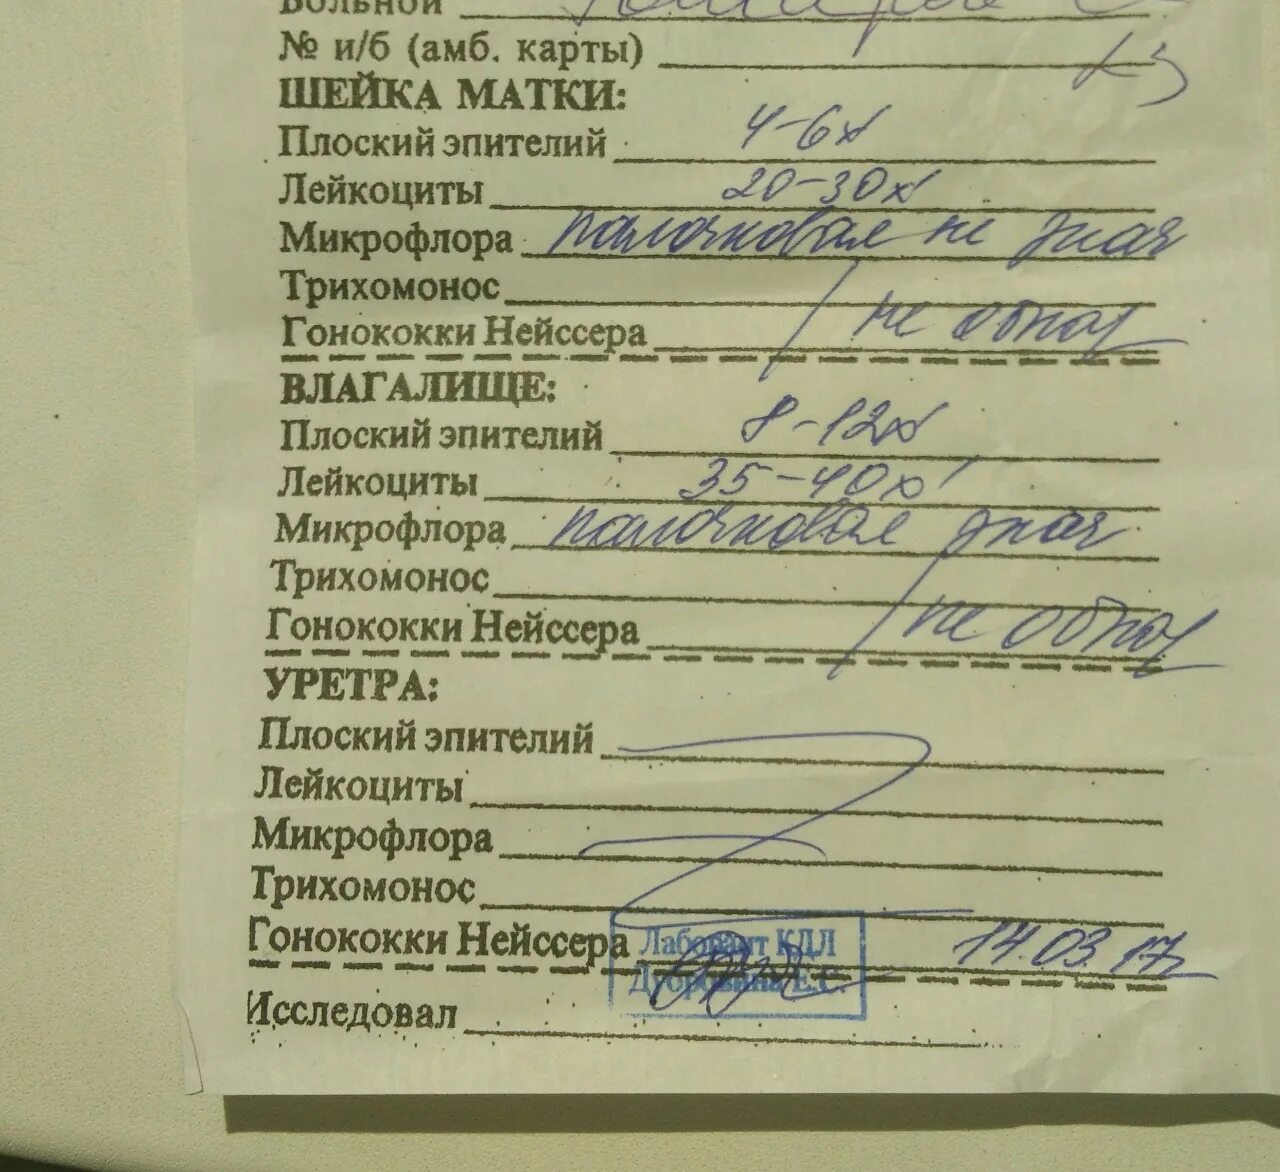 Больной
№ и/б (амб. карты)
ШЕЙКА МАТКИ:
Плоский эпителий 4-6х
Лейкоциты 20-30х
Микрофлора палочковая не знач
Трихомонос
Гонококки Нейссера не обнар
ВЛАГАЛИЩЕ:
Плоский эпителий 8-12х
Лейкоциты 35-40х
Микрофлора палочковая знач
Трихомонос
Гонококки Нейссера не обнар
УРЕТРА:
Плоский эпителий
Лейкоциты
Микрофлора
Трихомонос
Гонококки Нейссера 14.03.17
Лаборант КДЛ
Е.С.
Исследовал